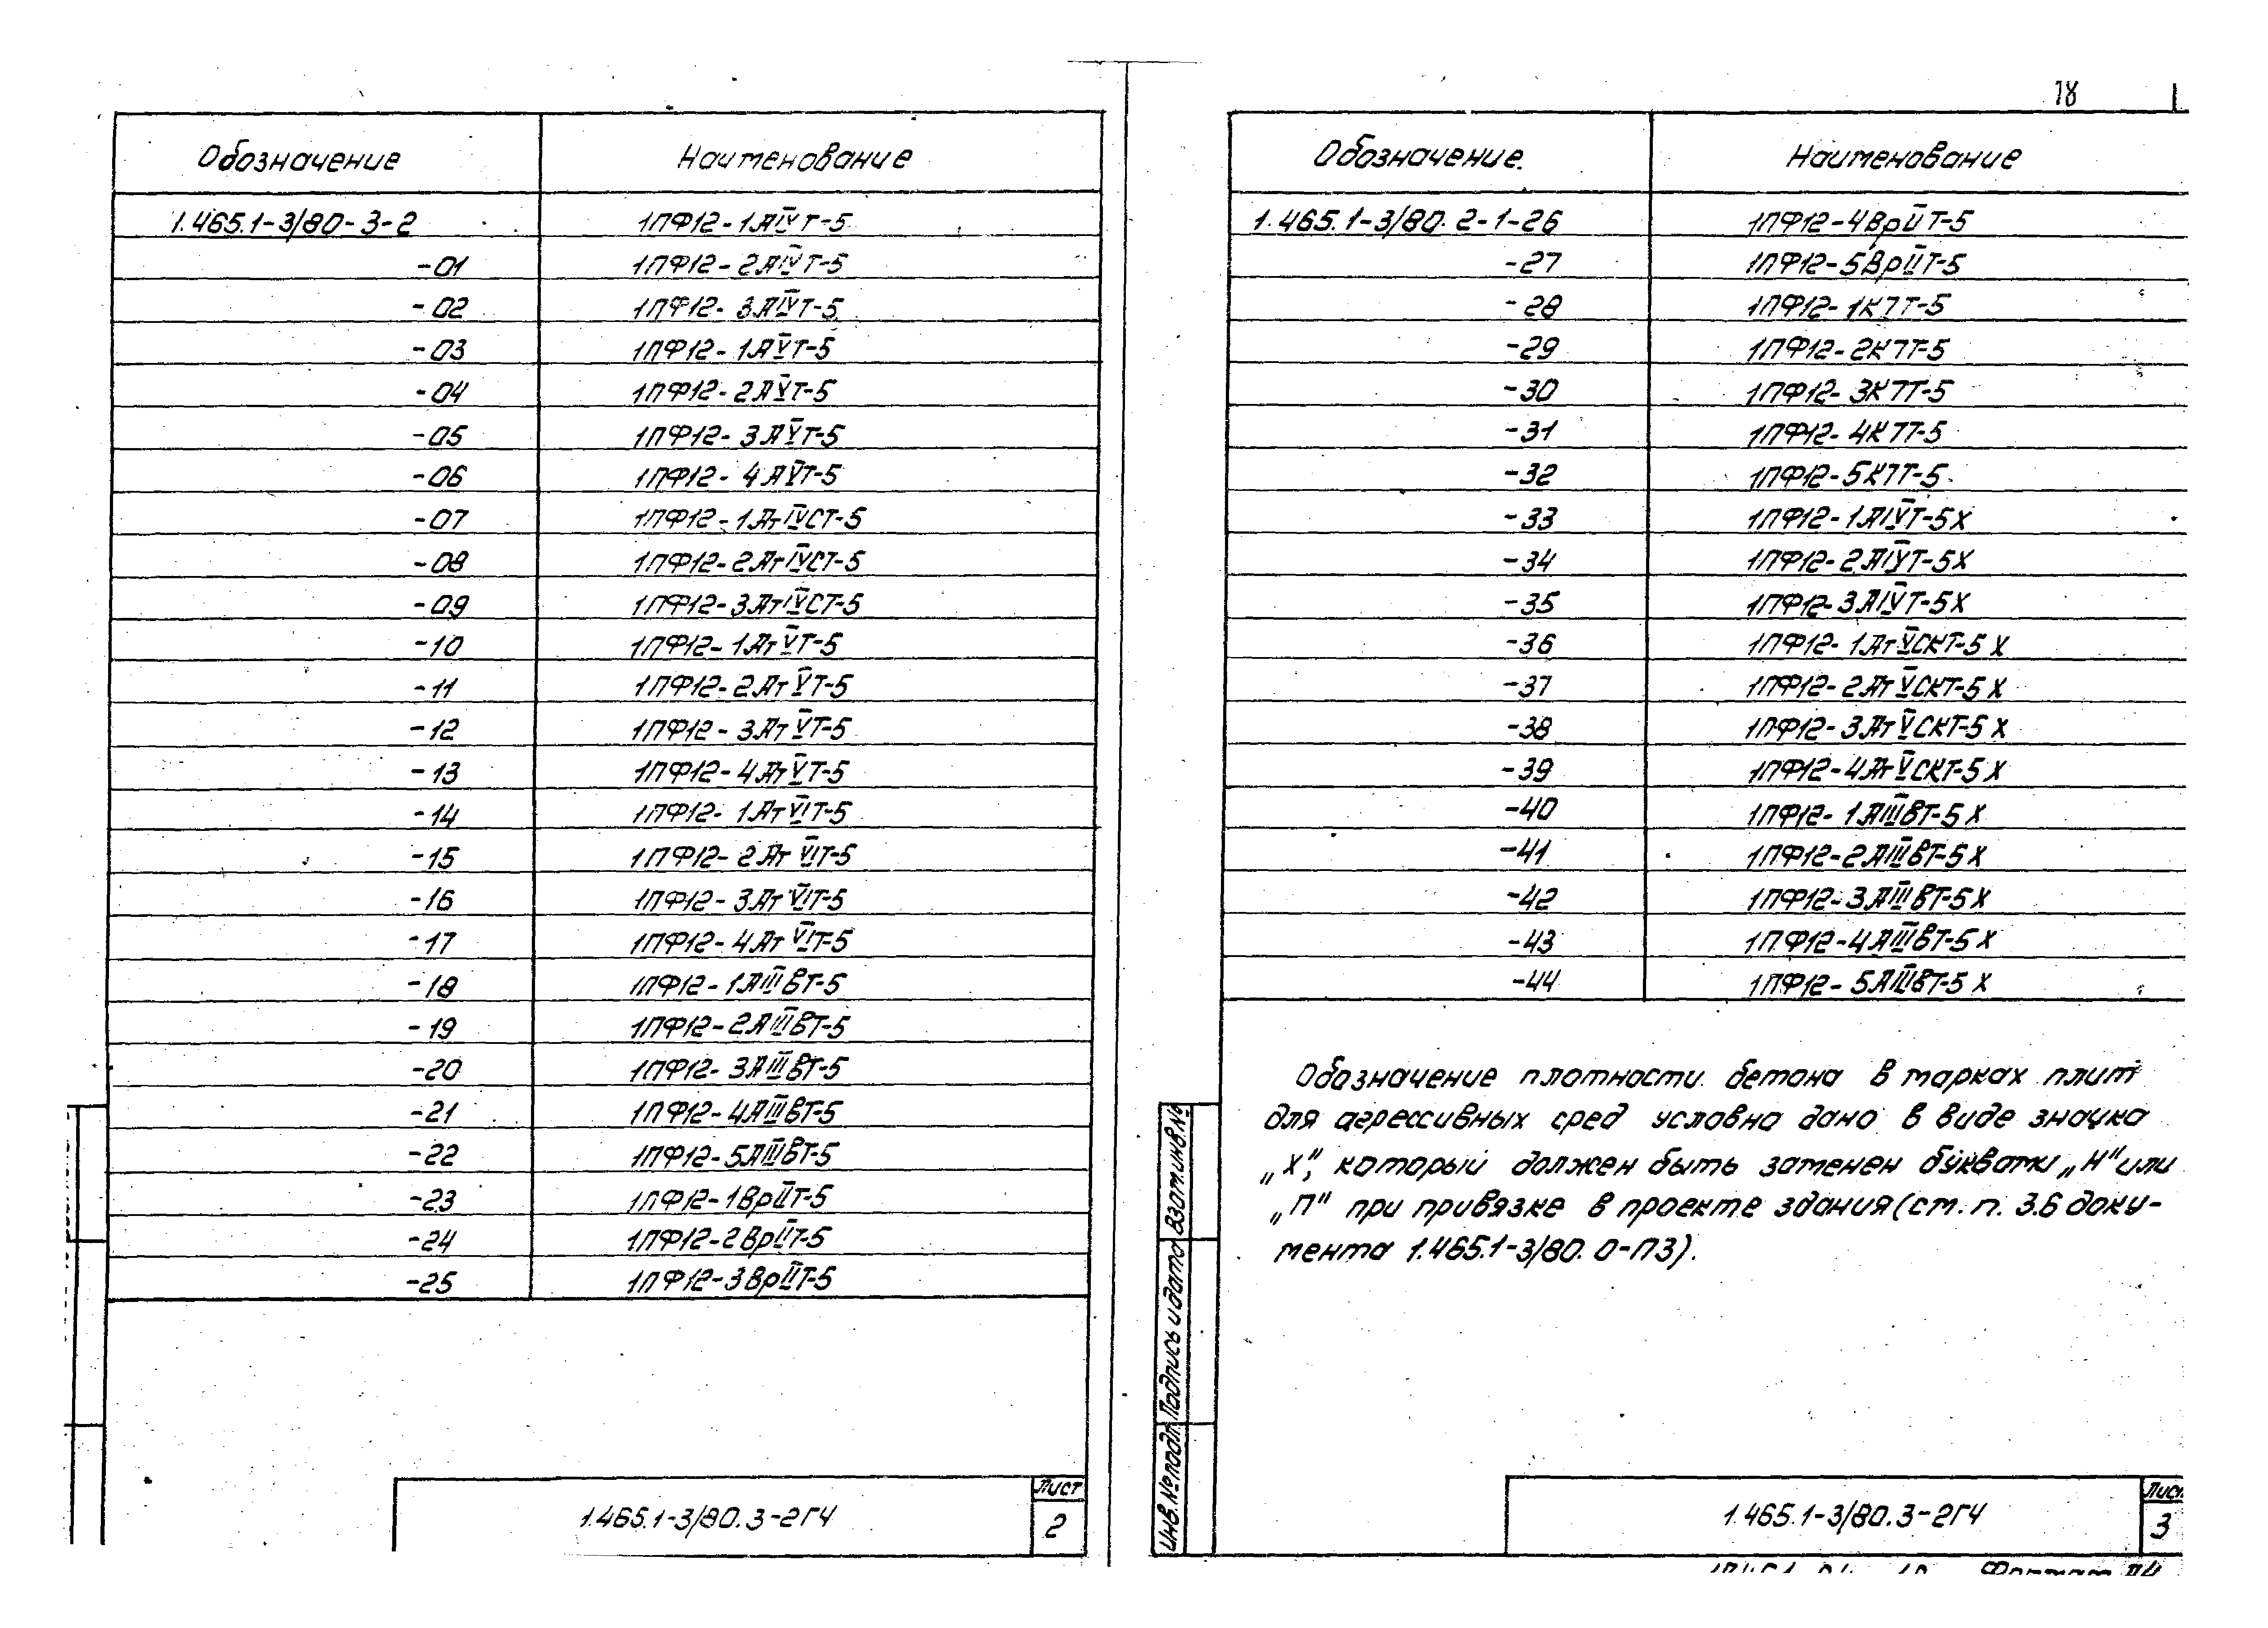 18
Обозначение Наименование
1.465.1-3/80-3-2 1ПФ12-1АIVТ-5
-01 1ПФ12-2АIVТ-5
-02 1ПФ12-3АIVТ-5
-03 1ПФ12-1АVТ-5
-04 1ПФ12-2АVТ-5
-05 1ПФ12-3АVТ-5
-06 1ПФ12-4АVТ-5
-07 1ПФ12-1АтIVСТ-5
-08 1ПФ12-2АтIVСТ-5
-09 1ПФ12-3АтIVСТ-5
-10 1ПФ12-1АтVТ-5
-11 1ПФ12-2АтVТ-5
-12 1ПФ12-3АтVТ-5
-13 1ПФ12-4АтVТ-5
-14 1ПФ12-1АтVIТ-5
-15 1ПФ12-2АтVIТ-5
-16 1ПФ12-3АтVIТ-5
-17 1ПФ12-4АтVIТ-5
-18 1ПФ12-1АIIIвТ-5
-19 1ПФ12-2АIIIвТ-5
-20 1ПФ12-3АIIIвТ-5
-21 1ПФ12-4АIIIвТ-5
-22 1ПФ12-5АIIIвТ-5
-23 1ПФ12-1ВрIIТ-5
-24 1ПФ12-2ВрIIТ-5
-25 1ПФ12-3ВрIIТ-5
1.465.1-3/80.3-2ГЧ
Лист
2
Обозначение. Наименование
1.465.1-3/80.2-1-26 1ПФ12-4ВрIIТ-5
-27 1ПФ12-5ВрIIТ-5
-28 1ПФ12-1К7Т-5
-29 1ПФ12-2К7Т-5
-30 1ПФ12-3К7Т-5
-31 1ПФ12-4К7Т-5
-32 1ПФ12-5К7Т-5
-33 1ПФ12-1АIVТ-5Х
-34 1ПФ12-2АIVТ-5Х
-35 1ПФ12-3АIVТ-5Х
-36 1ПФ12-1АтVСКТ-5Х
-37 1ПФ12-2АтVСКТ-5Х
-38 1ПФ12-3АтVСКТ-5Х
-39 1ПФ12-4АтVСКТ-5Х
-40 1ПФ12-1АIIIвТ-5Х
-41 1ПФ12-2АIIIвТ-5Х
-42 1ПФ12-3АIIIвТ-5Х
-43 1ПФ12-4АIIIвТ-5Х
-44 1ПФ12-5АIIIвТ-5Х
Обозначение плотности бетона в марках плит
для агрессивных сред условно дано в виде значка
„Х", который должен быть заменен буквами „Н" или
„П" при привязке в проекте здания (см. п. 3.6 доку-
мента 1.465.1-3/80.0-ПЗ).
Инв.№подл. Подпись и дата Взам.инв.№
1.465.1-3/80.3-2ГЧ
Лист
3
Формат